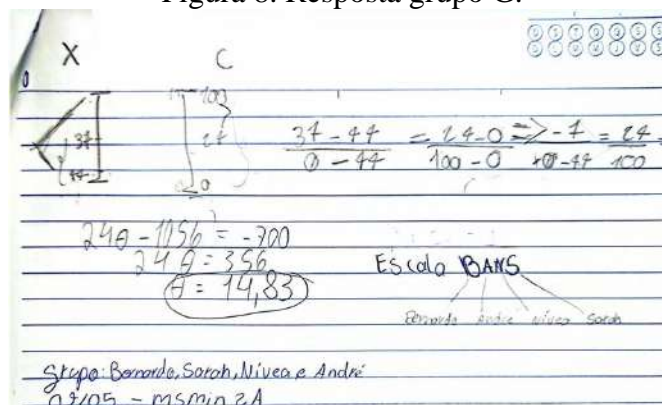 Figura 8: Resposta grupo G.
X C
0
100
37 24
44 0
37 - 44 / θ - 44 = 24 - 0 / 100 - 0 => -7 / θ - 44 = 24 / 100
24θ - 1056 = -700
24θ = 356
θ = 14,83
Escala BANS
Bernardo André Nívea Sarah
grupo: Bernardo, Sarah, Nívea e André